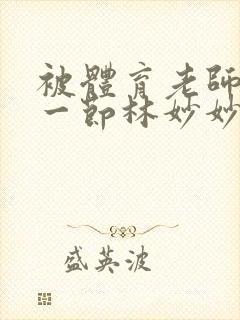 被體育老師
一節林妙妙
盛英波